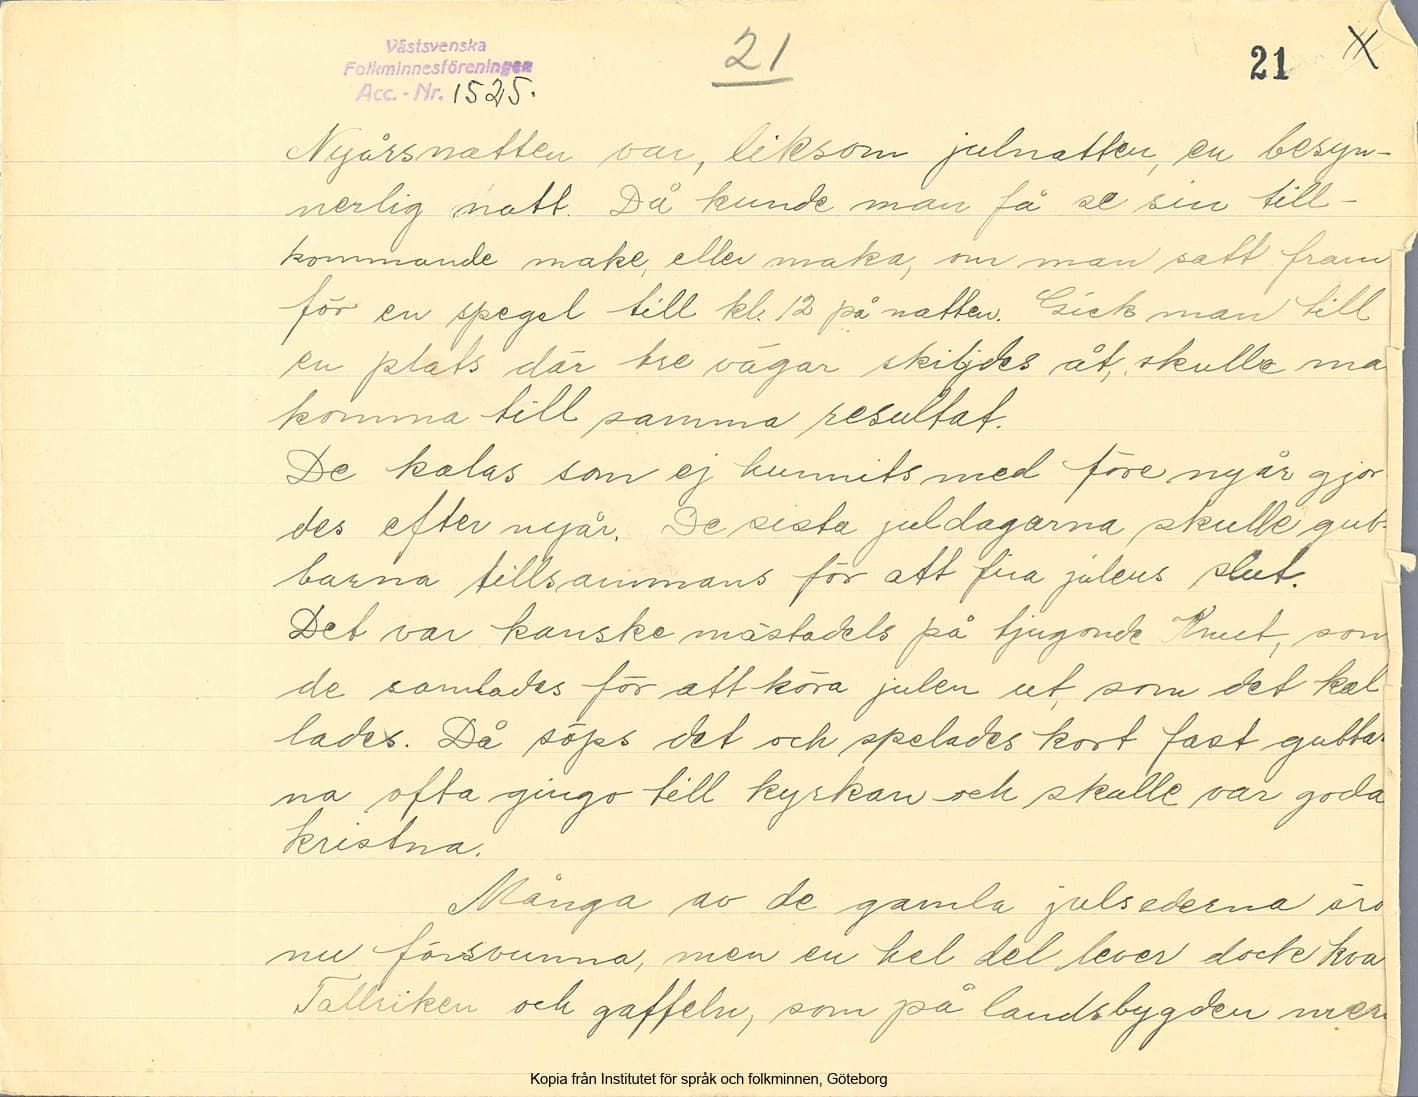 Västsvenska
Folkminnesföreningen
Acc. - Nr. 1525.
21
21
X
Nyårsnatten var, liksom julnatten, en besyn-
nerlig natt. Då kunde man få se sin till-
kommande make, eller maka, om man satt fram
för en spegel till kl. 12 på natten. Gick man till
en plats där tre vägar skiljdes åt, skulle ma
komma till samma resultat.
De kalas som ej hunnits med före nyår gjor
des efter nyår. De sista juldagarna skulle gub-
barna tillsammans för att fira julens slut.
Det var kanske mästadels på tjugonde Knut, som
de samlades för att köra julen ut, som det kal
lades. Då söps det och spelades kort fast gubbar
na ofta gingo till kyrkan och skulle var goda
kristna.
Många av de gamla julsederna äro
nu försvunna, men en hel del lever dock kva
Tallriken och gaffeln, som på landsbygden mer
Kopia från Institutet för språk och folkminnen, Göteborg